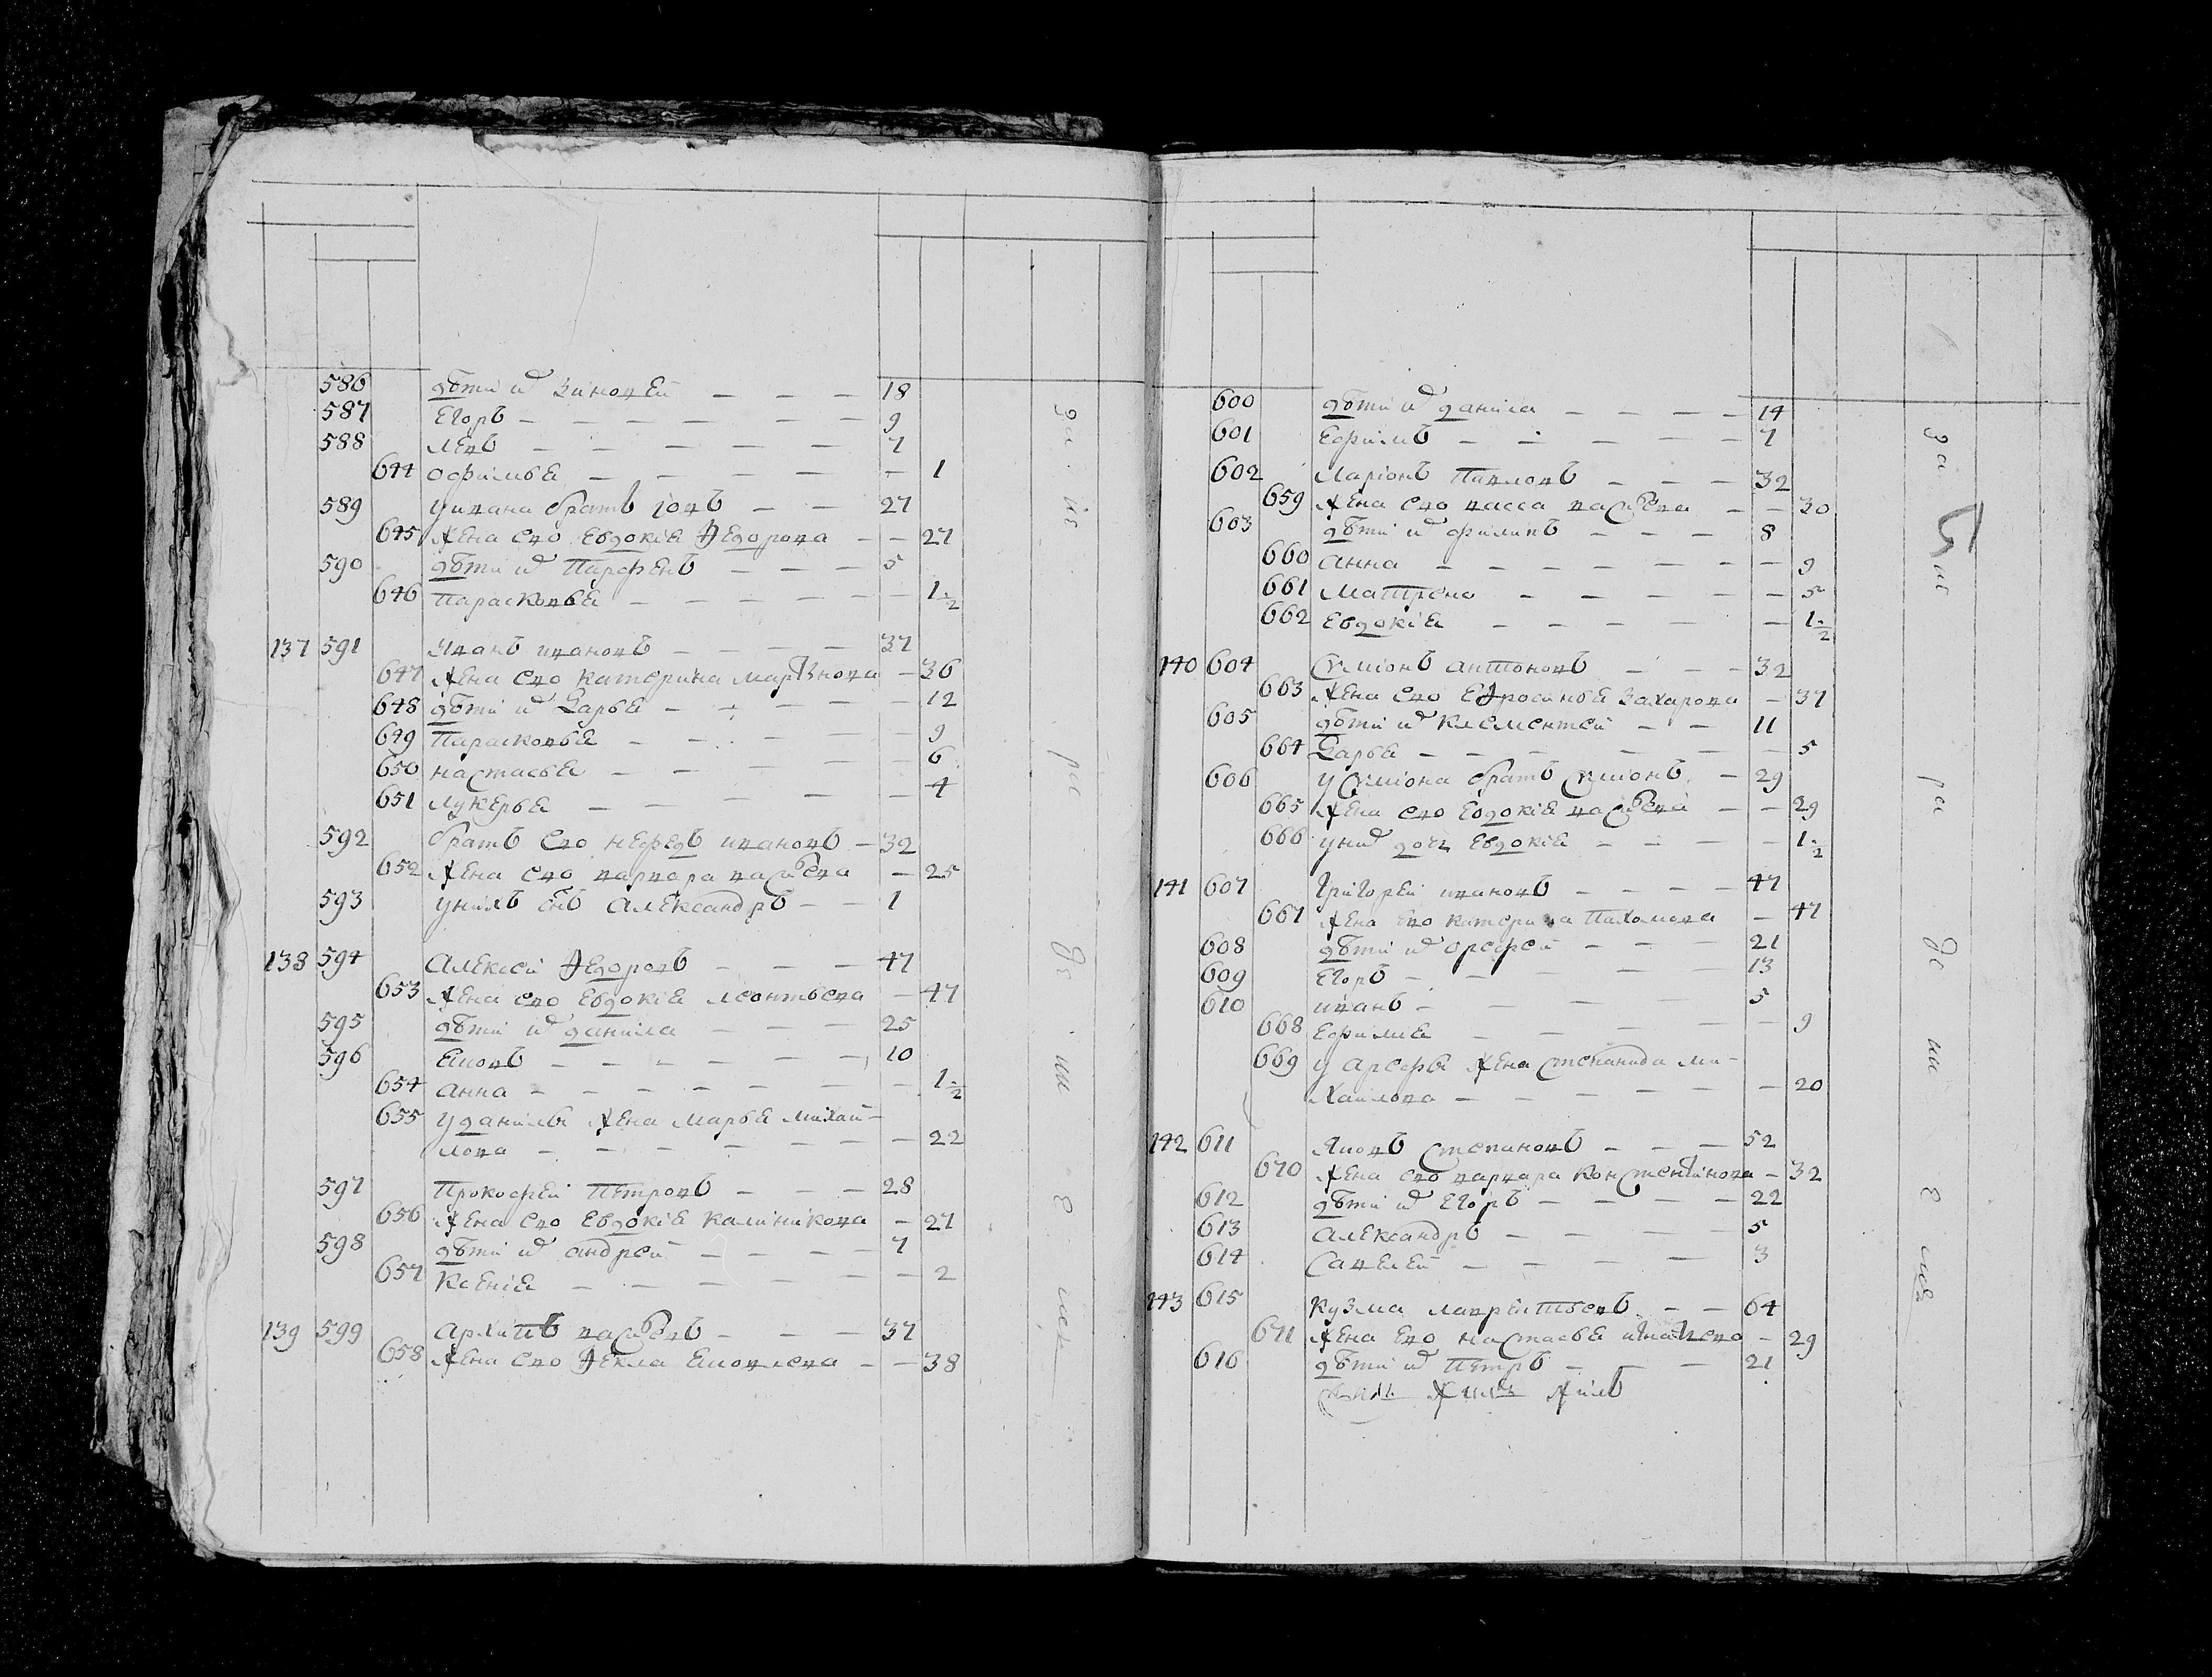 586 дѣти их Зиновей — — — 18
587 Егоръ — — — — — — 9
588 Левъ — — — — — — 7
644 офимья — — — — — — 1
589 у ивана братъ іовъ — — 27
645 жена ево Евдокія Ѳедорова — — 27
590 дѣти их Парфенъ — — — 5
646 Парасковья — — — — — — 1 1/2
137 591 Иванъ ивановъ — — — — 37
647 жена ево катерина Мартинова — 36
648 дѣти их Дарья — — — — — 12
649 Парасковья — — — — — 9
650 настасья — — — — — 6
651 лукерья — — — — — 4
592 братъ ево нефедъ ивановъ — 32
652 жена ево варвара васильева — 25
593 у нихъ снъ Александръ — — 1
138 594 Алексеи Ѳедоровъ — — — 47
653 жена ево Евдокія леонтьева — 47
595 дѣти их данила — — — 25
596 Яковъ — — — — — — 10
654 анна — — — — — — — 1 1/2
655 у данилы жена Марья михай-
лова — — — — — — — 22
597 Прокофеи Петровъ — — — 28
656 жена ево Евдокія калиникова — 27
598 дѣти их андреи — — — — 7
657 Ксенія — — — — — — 2
139 599 Архипъ васильевъ — — — 37
658 жена ево Ѳекла Яковлева — — 38
за ис ра де ни е мея
600 дѣти их данила — — — — 14
601 Ефимъ — — — — — 7
602 Ларіонъ Павловъ — — — 32
659 жена ево васса васильева — — 30
603 дѣти их филипъ — — — 8
660 анна — — — — — — — 9
661 Матрена — — — — — 5
662 Евдокія — — — — — 1 1/2
140 604 Симіонъ антоновъ — — — 32
663 жена ево Еѳросинья Захарова — 37
605 дѣти их клементей — — 11
664 Дарья — — — — — — 5
606 у Симіона братъ Симіонъ — 29
665 жена ево Евдокія васильева — — 29
666 у них дочь Евдокія — — — — 1 1/2
141 607 Григореи ивановъ — — — — 47
667 жена ево катерина Пахомова — 47
608 дѣти их орефеи — — — 21
609 Егоръ — — — — — 13
610 иванъ — — — — 5
668 Ефимия — — — — — 9
669 у арефы жена степанида ми-
хаилова — — — — — 20
142 611 Яковъ Степановъ — — — 52
670 жена ево варвара Констентинова — 32
612 дѣти их Егоръ — — — — 22
613 Александръ — — — — 5
614 Савелеи — — — — 3
143 615 Кузма лаврентьевъ — — 64
671 жена ево настасья игнатьева — 29
616 дѣти их Петръ — — — 21
за ра де ни е